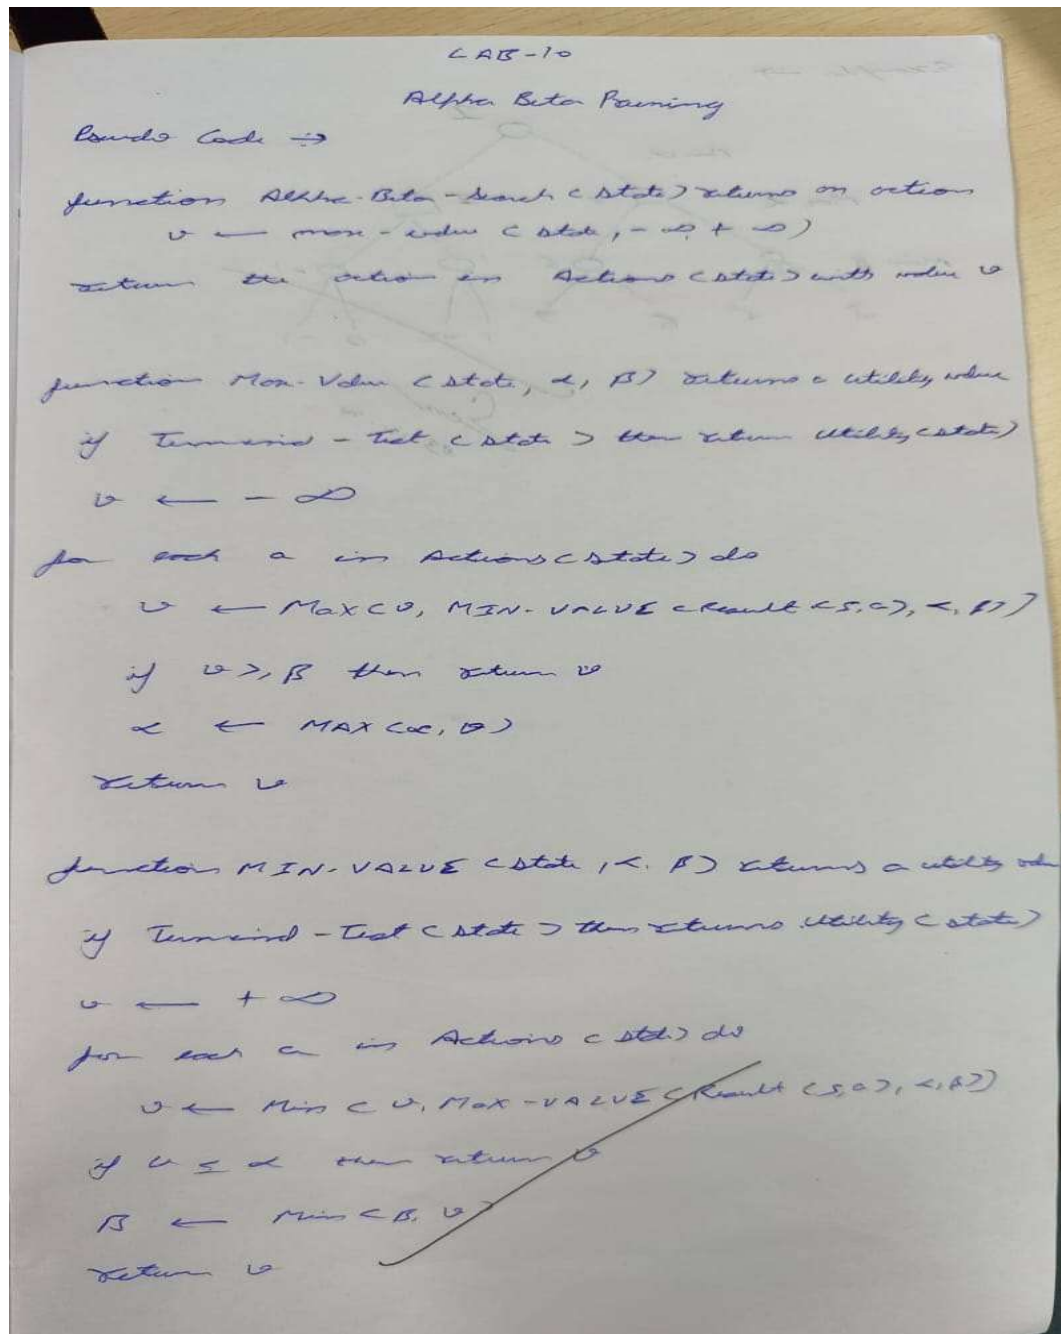 LAB-10
Alpha Beta Pruning
Pseudo Code →
function Alpha-Beta-Search (state) returns an action
v ← max-value (state, -∞, +∞)
return the action in Actions (state) with value v
function Max-Value (state, α, β) returns a utility value
if Terminal-Test (state) then return utility (state)
v ← -∞
for each a in Actions (state) do
v ← Max (v, MIN-VALUE (Result (s,a), α, β))
if v ≥ β then return v
α ← MAX (α, v)
return v
function MIN-VALUE (state, α, β) returns a utility value
if Terminal-Test (state) then returns utility (state)
v ← +∞
for each a in Actions (state) do
v ← Min (v, Max-VALUE (Result (s,a), α, β))
if v ≤ α then return v
β ← Min (β, v)
return v